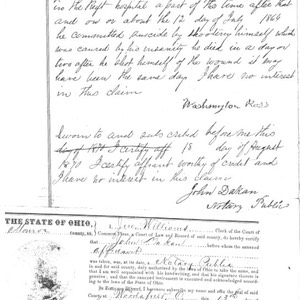 in the Regt hospital a part of the time after that
and on or about the 12 day of July 1864
he committed suicide by shooting himself which
was caused by his insanity he died in a day or
two after he shot himself of the wound it may
have been the same day I have no interest
in this claim
Washington Ross
Sworn to and subscribed before me this
day of 18 day of August
1870 I certify affiant worthy of credit and
I have no interest in this claim
John Dakan
Notary Public
THE STATE OF OHIO,
Monroe county, ss.
Williams Clerk of the Court of
Common Pleas, a Court of Law and Record of said county, do hereby certify
that John Dakan before whom the annexed
affidavit
was taken, was, at its date, a Notary Public
in and for said county, duly authorized by the laws of Ohio to take the same,
that I am well acquainted with his handwriting, and that his signature thereto
is genuine; and that the instrument is executed and acknowledged according to the
laws of the State of Ohio.